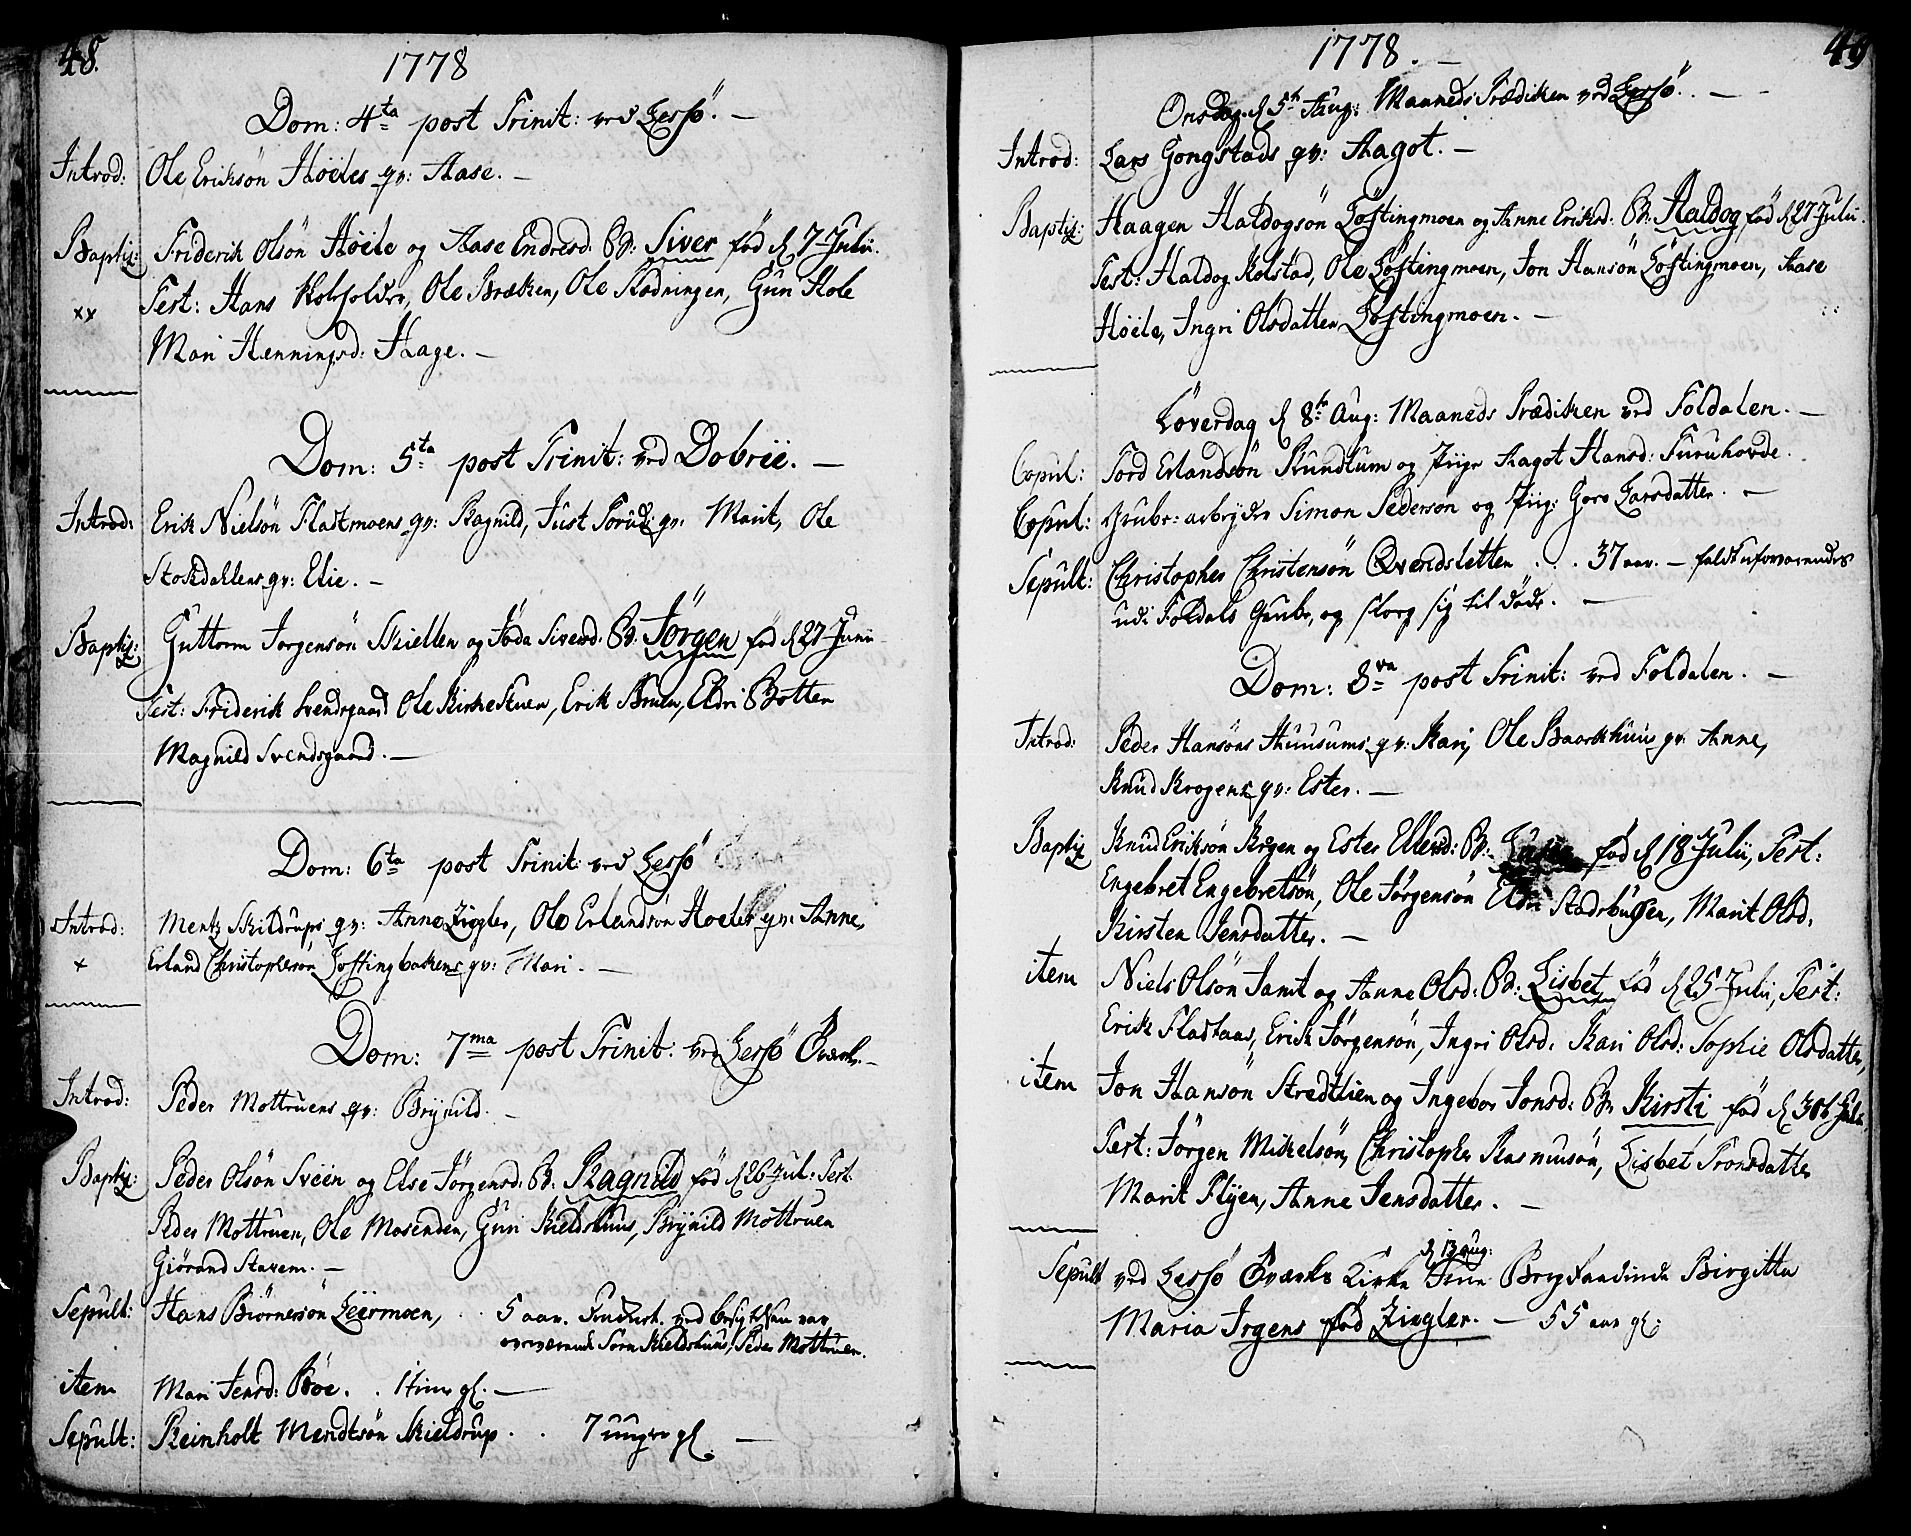 48.
1778
Dom: 4ta post Trinit: ved Lessö. —
Introd: Ole Eriksön Höeles qv: Aase. —
Baptiz: Friderik Olsön Höele og Aase Endresd: B: Siver föd d 7 Julii.
xx Test: Hans Ole Bræken, Ole Stadningen, Gun Hole
Mari Henningsd: Hage. —
Dom: 5ta post Trinit: ved Dobrëe. —
Introd: Erik Nielsön Fladtmoens qv: Ragnild, Just qv: Marit, Ole
Stokdahlens qv: Elie. —
Baptiz: Guttorm Jorgensön Skiellen og Siversd: B: Jörgen föd d 27 Junii
Test: Friderik Svendsgaard Ole Kirkestuen, Erik Bruen, Eldri Botten
Magnild Svendsgaard. —
Dom: 6ta post Trinit: ved Lessö
Introd: Mentz Skildrups qv: Anne Ziegler, Ole Erlandsön Hoeles qv: Anne,
x Erland Christophersön Löftingbakens qv: Mari. —
Dom: 7ma post Trinit: ved Lessö Öværk. —
Introd: Peder Mottruens qv: Brynild. —
Baptiz: Peder Olsön Sveen og Else Jörgensd: B: Ragnild föd d 26 Jul. Test.
Peder Mottruen, Ole Mosenden, Guri Kieldshuus, Brynild Mottruen
Giörand Starem. —
Sepult: Hans Biörnersön Leermoen, . . 5 aar.
overværende Kieldshuus, Peder Mottruen.
item Mari Jensd: Böe. . gl. —
Sepult: Reinholt Mendtsön Skieldrup . . 7 uuger gl. —
49
1778. —
Onsdag d 5te Aug: Maaneds Prædiken ved Lessö. . —
Introd: Lars Gongstads qv: Aagot. —
Baptiz: Haagen Haldogsön Löftingmoen og Anne Eriksd: B: Haldog föd d 27 Julii.
Test: Haldog Kolstad, Ole Löftingmoen, Jon Hansön Löftingmoen, Aase
Höële, Ingri Olsdatter Löftingmoen. —
Löverdag d 8te Aug: Maaneds Prædiken ved Foldalen. —
Copul: Tord Erlandsön Rundlum og Piige Aagot Hansd: Furuhovde.
Copul: Grube: arbeyder Simon Pedersön og Piig: Goro Larsdatter. —
Sepult: Christopher Christensön Qvendsletten . . . 37 aar. — faldt uforvarendes
udi Foldals Grube, og slog sig til döde. —
Dom: 8va post Trinit: ved Foldalen. —
Introd: Peder Hansöns Huusums qv: Kari, Ole Baarkhuus qv: Anne,
Knud Krogens qv: Ester. —
Baptiz Knud Eriksön Krogen og Ester Ellend: B: föd d 18 Julii, Test:
Engebret Engebretsön, Ole Jörgensön Eldri Stadsbuøen, Marit Olsd.
Kirsten Jensdatter. —
item Niels Olsön Jamt og Anne Olsd: B: Lisbet föd d 25 Julii, Test:
Erik Fladtaas, Erik Jörgensön, Ingri Olsd: Kari Olsd: Sophie Olsdatter,
item Jon Hansön Strædtlien og Ingebor Jonsd: B: Kirsti föd d 30te Julii
Test: Jörgen Mikelsön, Christopher Rasmusön, Lisbet Tronsdatter
Marit Flyen, Anne Jensdatter. —
d 13 Aug:
Sepult ved Lessö Öværks Kirke Birgitta
Maria Irgens föd Ziegler. — 55 aar gl: